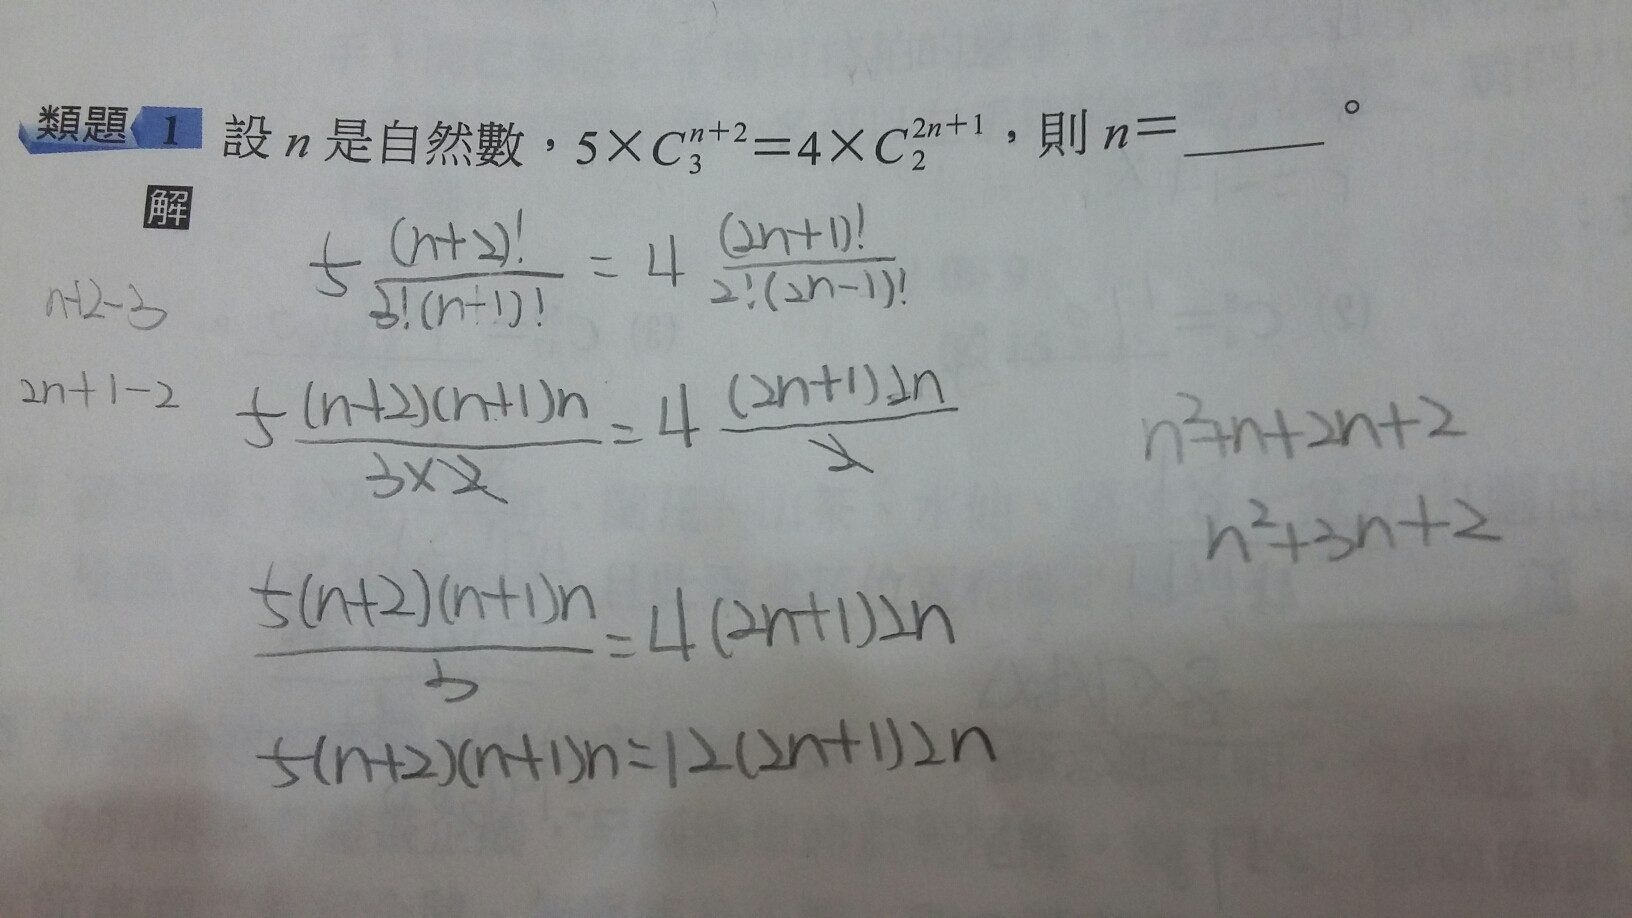 類題 1 設 n 是自然數，5×C₃ⁿ⁺²=4×C₂²ⁿ⁺¹，則 n=______。
解
5 (n+2)!/3!(n-1)! = 4 (2n+1)!/2!(2n-1)!
n+2-3
2n+1-2
5 (n+2)(n+1)n/3×2 = 4 (2n+1)2n/2
n²+n+2n+2
n²+3n+2
5(n+2)(n+1)n/3 = 4(2n+1)2n
5(n+2)(n+1)n=12(2n+1)2n